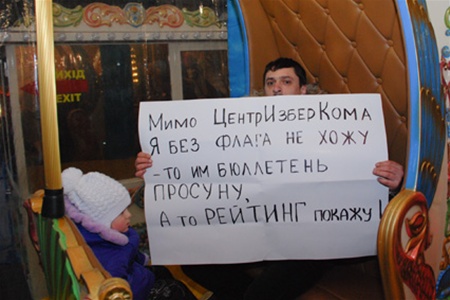 ВИХІД
EXIT
Мимо ЦентрИзберКома
Я БЕЗ ФЛАГА НЕ ХОЖУ
-ТО ИМ БЮЛЛЕТЕНЬ
ПРОСУНУ,
А ТО РЕЙТИНГ ПОКАЖУ!